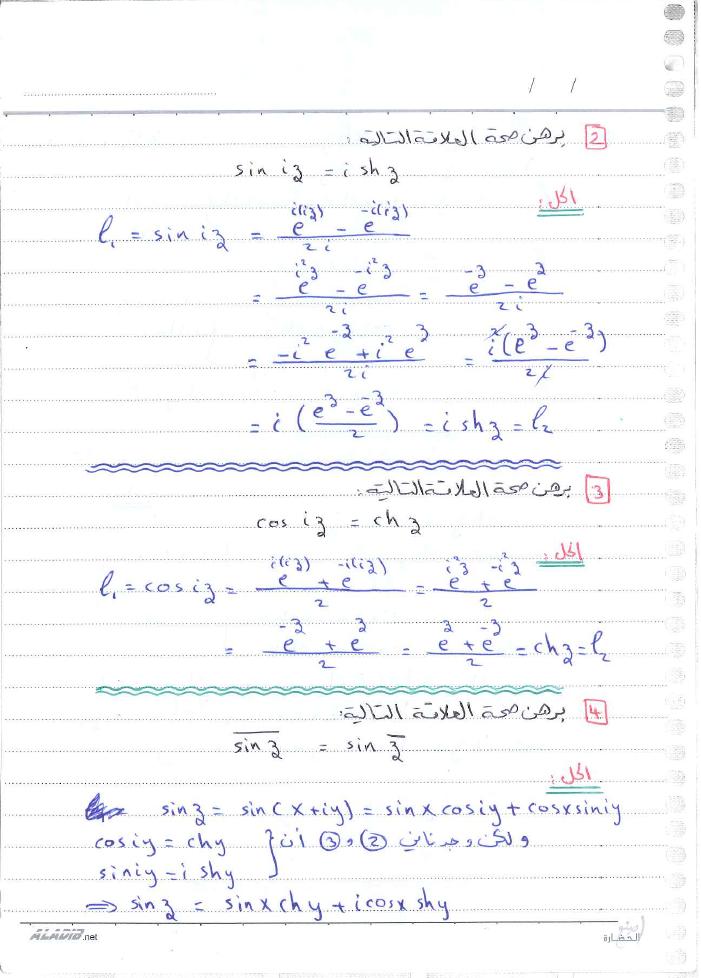 / /
2 برهن صحة العلاقة التالية:
sin iz = i sh z
الحل:
l₁ = sin iz = (e^{i(iz)} - e^{-i(iz)}) / 2i
= (e^{i²z} - e^{-i²z}) / 2i = (e^{-z} - e^{z}) / 2i
= (-i² e^{-z} + i² e^{z}) / 2i = i²(e^{z} - e^{-z}) / 2i
= i ((e^{z} - e^{-z}) / 2) = i sh z = l₂
3 برهن صحة العلاقة التالية:
cos iz = ch z
الحل:
l₁ = cos iz = (e^{i(iz)} + e^{-i(iz)}) / 2 = (e^{i²z} + e^{-i²z}) / 2
= (e^{-z} + e^{z}) / 2 = (e^{z} + e^{-z}) / 2 = ch z = l₂
4 برهن صحة العلاقة التالية:
\overline{sin z} = sin \overline{z}
الحل:
sin z = sin(x+iy) = sin x cos iy + cos x sin iy
ولكن وجدنا في 2 و 3 أن } cos iy = ch y
sin iy = i sh y
⇒ sin z = sin x ch y + i cos x sh y
ALADIB.net
الحضارة